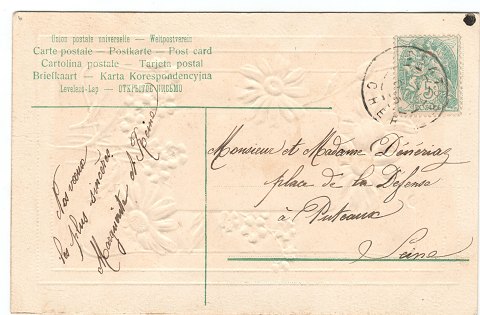 Union postale universelle — Weltpostverein
Carte postale — Postkarte — Post card
Cartolina postale — Tarjeta postal
Briefkaart — Karta Korespondencyjna
Levelezö-Lap — ОТКРЫТОЕ ПИСЬМО
CHER
Monsieur et Madame Dénériaz
place de la Défense
à Puteaux
Seine
les plus sincères
Marguerite et